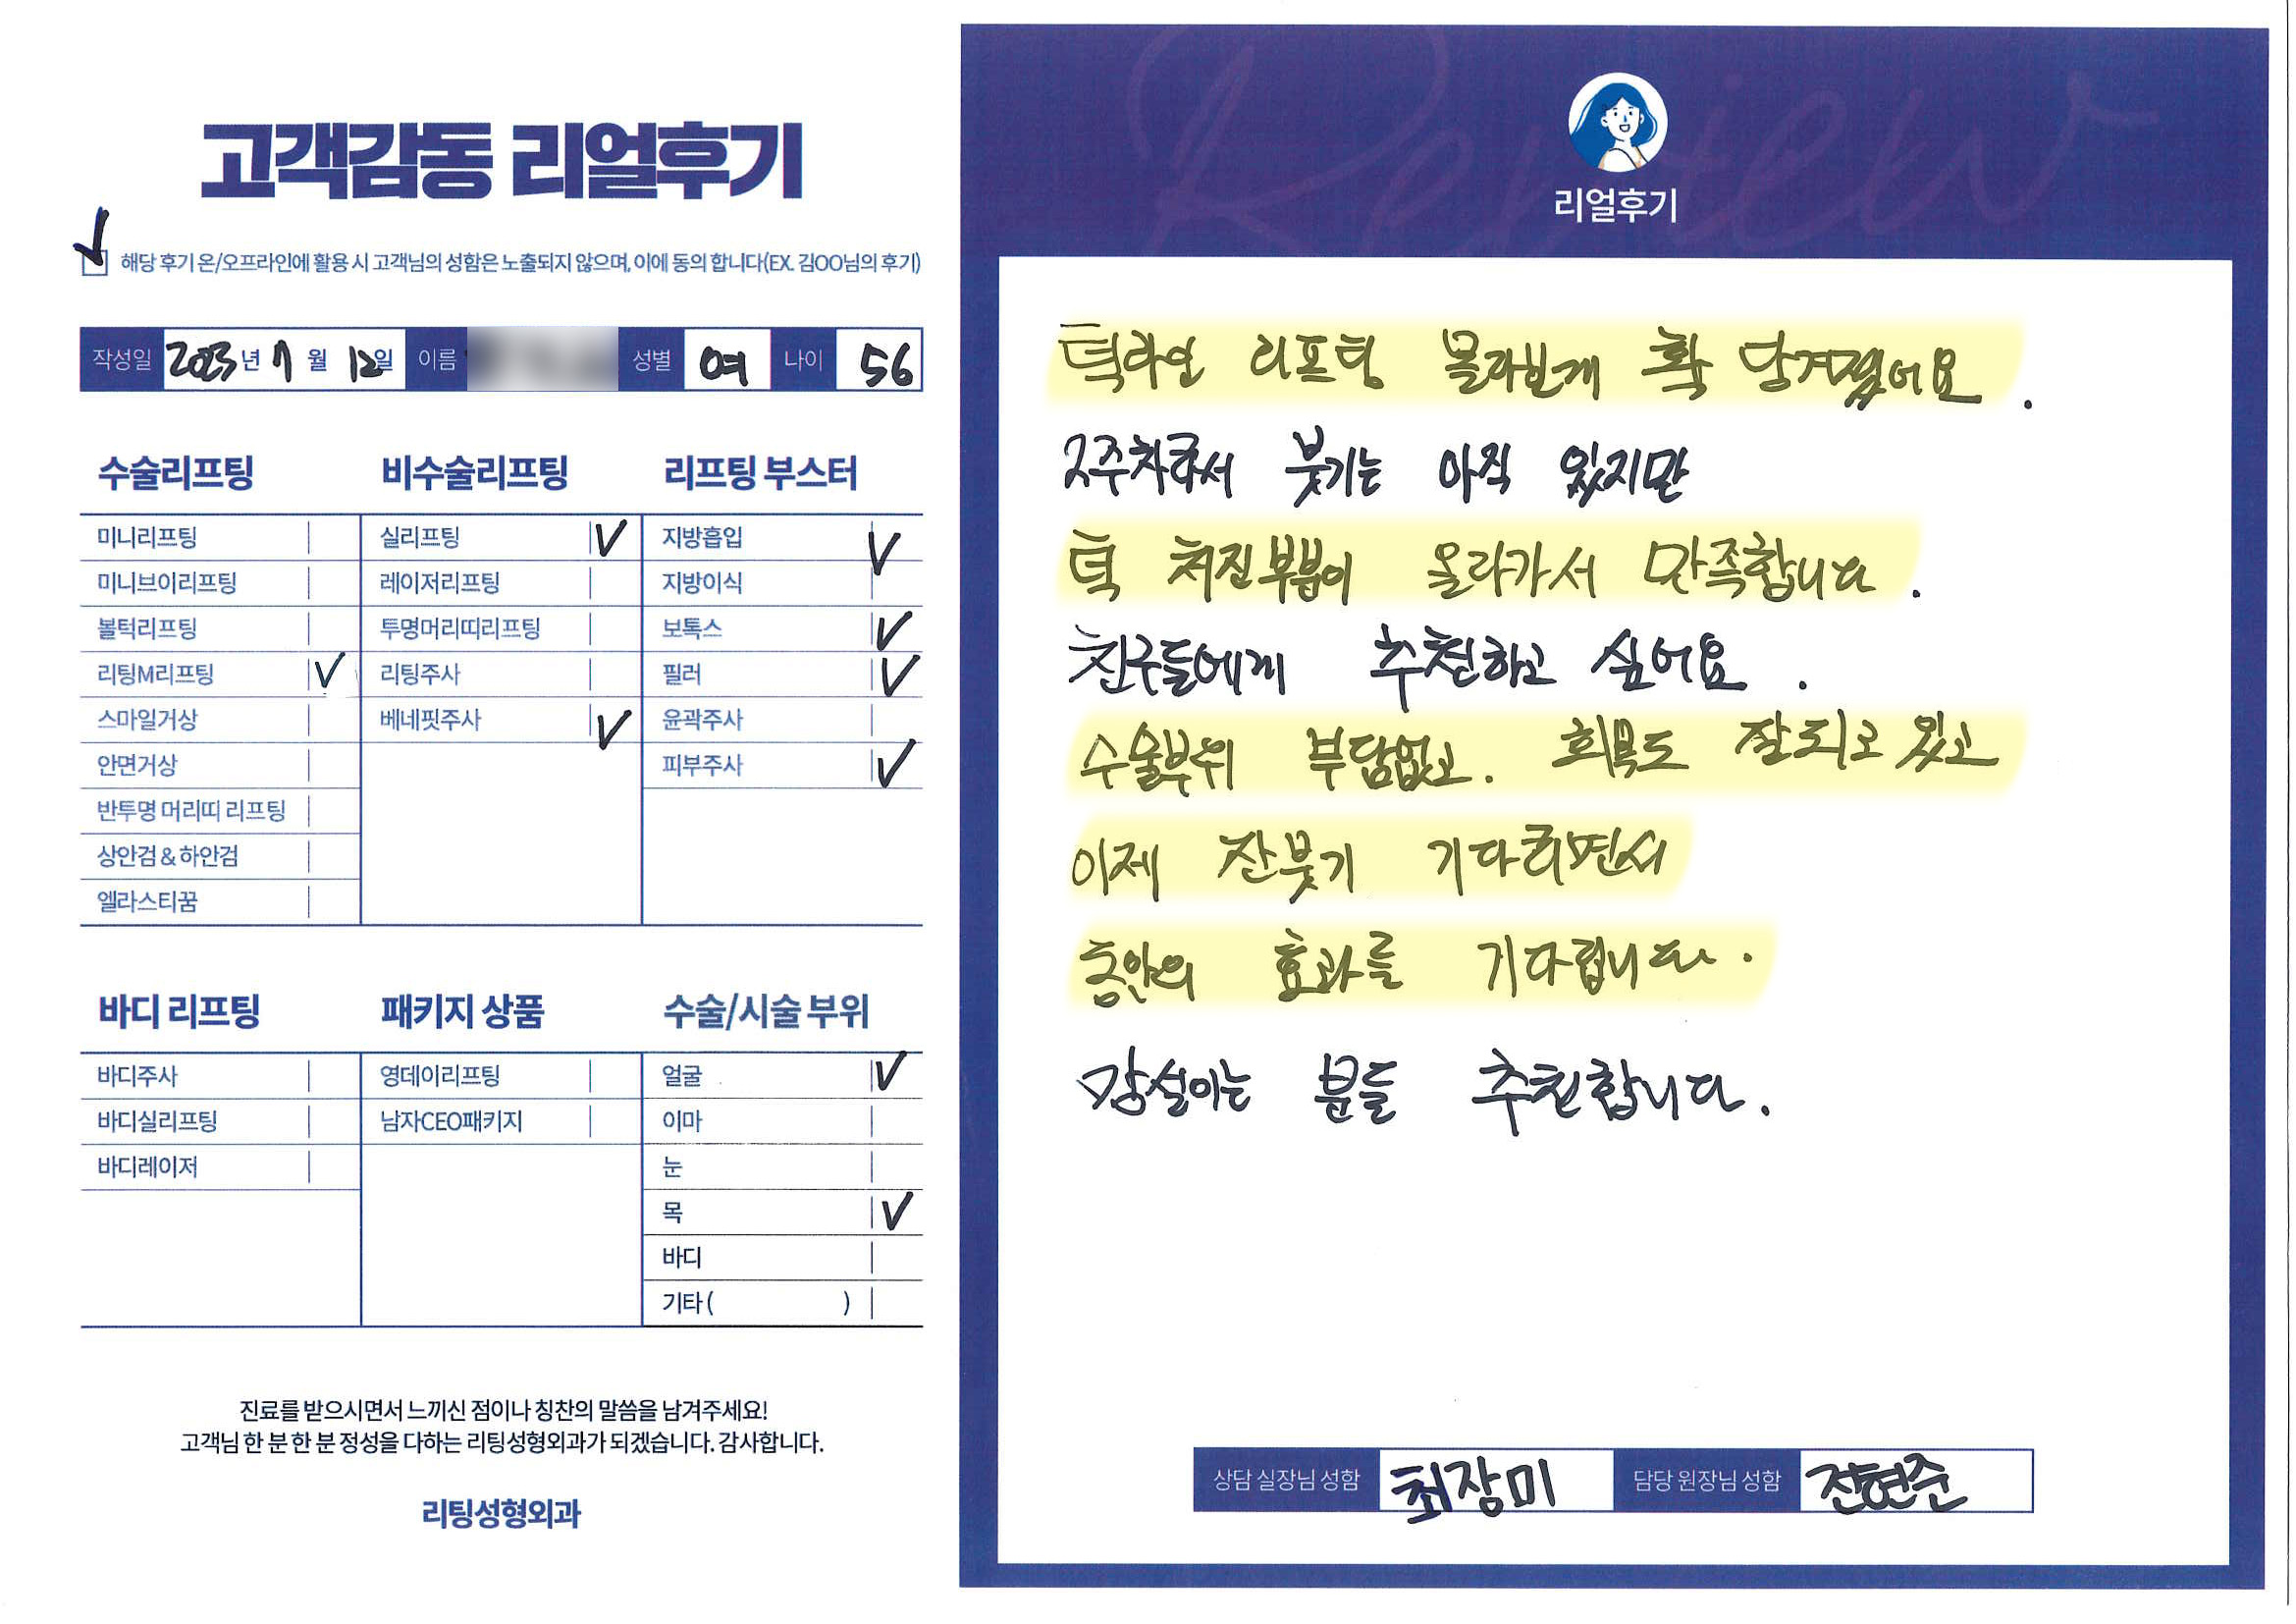 고객감동 리얼후기
해당 후기 온/오프라인에 활용 시 고객님의 성함은 노출되지 않으며, 이에 동의 합니다(EX. 김OO님의 후기)
작성일 2023년 7월 12일 이름 성별 여 나이 56
수술리프팅
미니리프팅
미니브이리프팅
볼턱리프팅
리팅M리프팅 ✓
스마일거상
안면거상
반투명 머리띠 리프팅
상안검 & 하안검
엘라스티꿈
비수술리프팅
실리프팅 ✓
레이저리프팅
투명머리띠리프팅
리팅주사
베네핏주사 ✓
리프팅 부스터
지방흡입 ✓
지방이식
보톡스 ✓
필러 ✓
윤곽주사
피부주사 ✓
바디 리프팅
바디주사
바디실리프팅
바디레이저
패키지 상품
영데이리프팅
남자CEO패키지
수술/시술 부위
얼굴 ✓
이마
눈
목 ✓
바디
기타 ( )
진료를 받으시면서 느끼신 점이나 칭찬의 말씀을 남겨주세요!
고객님 한 분 한 분 정성을 다하는 리팅성형외과가 되겠습니다. 감사합니다.
리팅성형외과
Review
리얼후기
턱라인 리프팅 몰라보게 확 당겨졌어요.
2주차라서 붓기는 아직 있지만
턱 처진부분이 올라가서 만족합니다.
친구들에게 추천하고 싶어요.
수술부위 부담없고. 회복도 잘되고 있고
이제 잔붓기 기다리면서
동안의 효과를 기다립니다.
망설이는 분들 추천합니다.
상담 실장님 성함 최장미 담당 원장님 성함 전현준